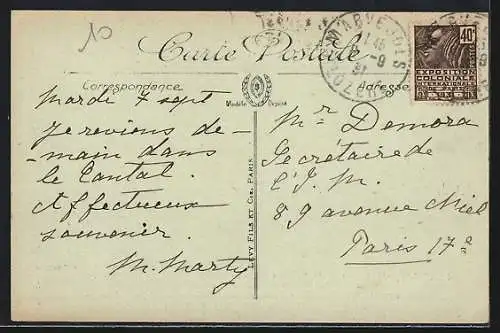 Carte Postale
Correspondance
Adresse
Modèle Déposé
LÉVY FILS ET CIE, PARIS
40c
POSTES
EXPOSITION
COLONIALE
INTERNATIONALE
PARIS 1931
MARVEJOLS
LOZERE
Mardi 7 sept
Je reviens de-
-main dans
le Cantal.
Affectueux
souvenir.
M. Marty
Mr Demora
Secrétaire de
l'J. M.
89 avenue Niel
Paris 17e